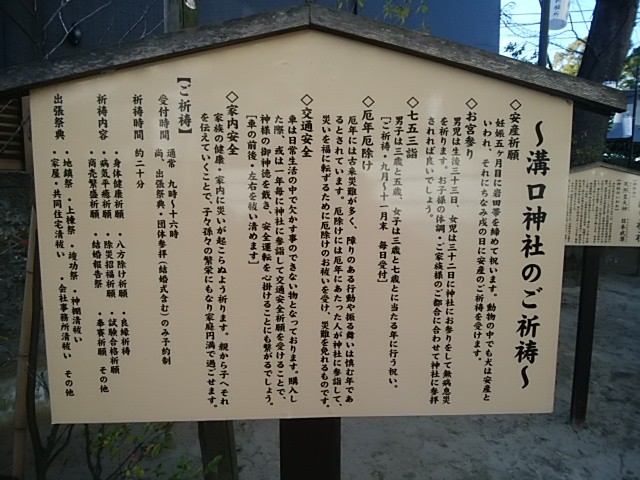 ～溝口神社のご祈祷～
◇安産祈願
妊娠五ヶ月目に岩田帯を締めて祝います。動物の中でも犬は安産と
いわれ、それにちなみ戌の日に安産のご祈祷を受けます。
◇お宮参り
男児は生後三十三日、女児は三十二日に神社にお参りをして無病息災
を祈ります。お子様の体調・ご家族様のご都合に合わせて神社に参拝
されれば良いでしょう。
◇七五三詣
男子は三歳と五歳、女子は三歳と七歳とに当たる年に行う祝い。
【ご祈祷・九月～十一月末 毎日受付】
◇厄年厄除け
厄年には古来災難が多く、障りのある行動や振る舞いは慎む年であ
るとされています。厄除けには厄年にあたった人が神社に参詣して、
災いを福に転ずるために厄除けのお祓いを受け、災難を免れるものです。
◇交通安全
車は日常生活の中で欠かす事のできない物となっております。購入し
た際、或は一年毎に神社に参詣して交通安全祈願を受けることで、
神様の御神徳を戴き、安全運転を心掛けることにも繋がるでしょう。
【車の前後・左右を祓い清めます】
◇家内安全
家族の健康・家内に災いが起こらぬよう祈ります。親から子へそれ
を伝えていくことで、子々孫々の繁栄にもなり家庭円満で過ごせます。
【ご祈祷】
受付時間 通常 九時～十六時
尚、出張祭典・団体参拝(結婚式含む)のみ予約制
祈祷時間 約二十分
祈祷内容 ・身体健康祈願 ・八方除け祈願 ・良縁祈祷
・病気平癒祈願 ・除災招福祈願 ・試験合格祈願
・商売繁盛祈願 ・結婚報告祭 ・奉賽祈願 その他
出張祭典 ・地鎮祭 ・上棟祭 ・竣功祭 ・神棚清祓い
家屋・共同住宅清祓い ・会社事務所清祓い その他